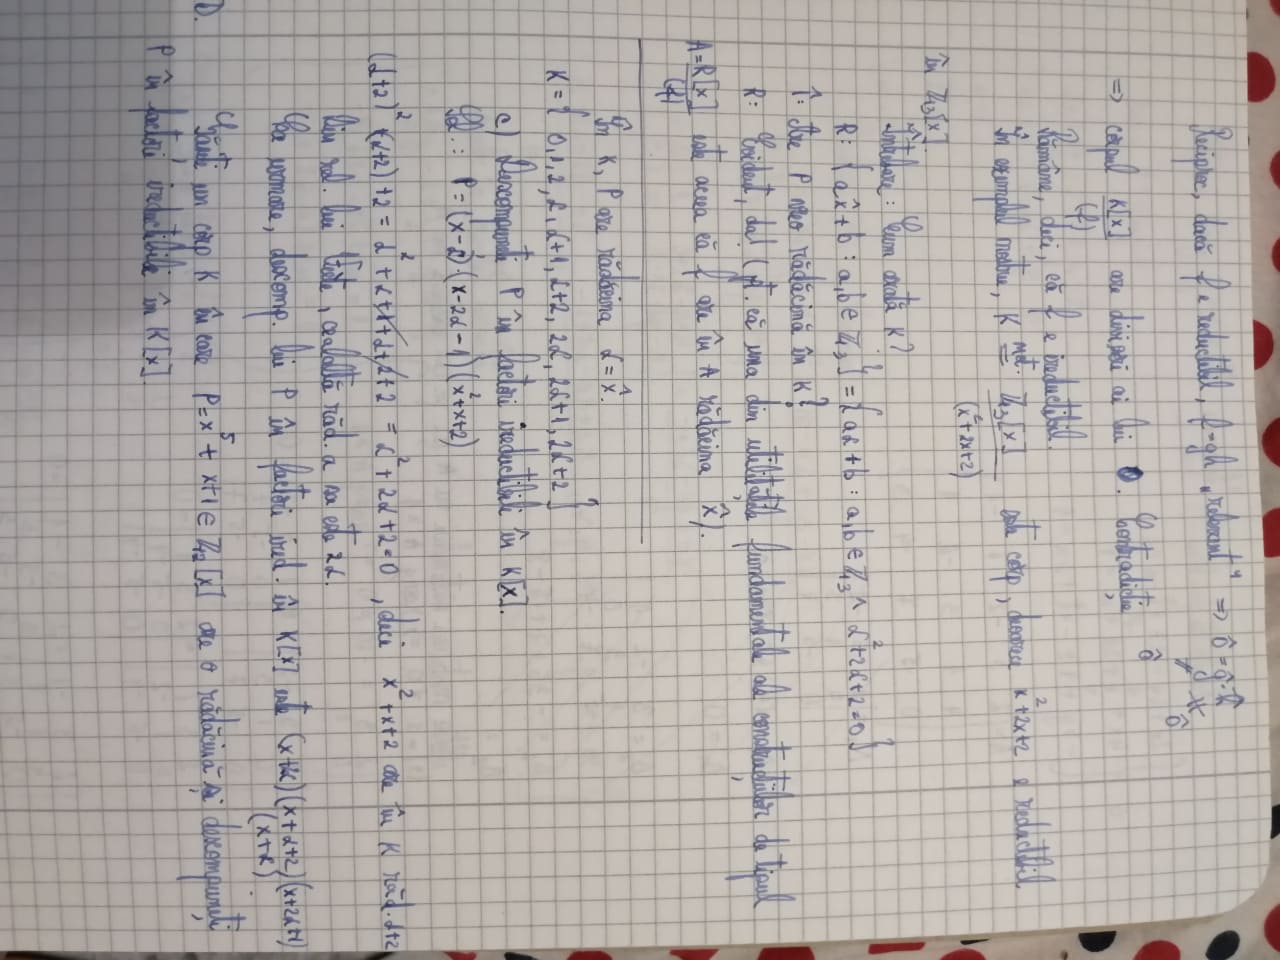 Reciproc, dacă f e reductibil, f=gh „relevant" ⇒ ô = ĝ·ĥ
ô ô
⇒ corpul K[x]/(f) are divizori ai lui 0. Contradicție
Rămâne, deci, că f e ireductibil.
În exemplul nostru, K not. Z₃[x]/(x²+2x+2) este corp, deoarece x²+2x+2 e ireductibil
în Z₃[x]
Întrebare: Cum arată K?
R: {ax̂+b : a,b∈Z₃} = {aα+b : a,b∈Z₃ ∧ α²+2α+2=0}
Î: Are P vreo rădăcină în K?
R: Evident, da! (Pt. că una din utilitățile fundamentale ale construcțiilor de tipul
A=R[x]/(f) este aceea că f are în A rădăcina x̂).
În K, P are rădăcina α=x̂.
K={0,1,2,α,α+1,α+2,2α,2α+1,2α+2}
c) Descompuneți P în factori ireductibili în K[x].
Sol.: P=(x-α)·(x-2α-1)(x²+x+2)
(α+2)²+(α+2)+2 = α²+α+1+α+2+2 = α²+2α+2=0, deci x²+x+2 are în K răd. α+2
Din rel. lui Viète, cealaltă răd. a sa este 2α.
Ca urmare, descomp. lui P în factori ired. în K[x] este (x+2α)(x+α+2)(x+2α+1)
(x+α)
D. Găsiți un corp K în care P=x⁵+x+1∈Z₂[x] are o rădăcină și descompuneți
P în factori ireductibili în K[x].